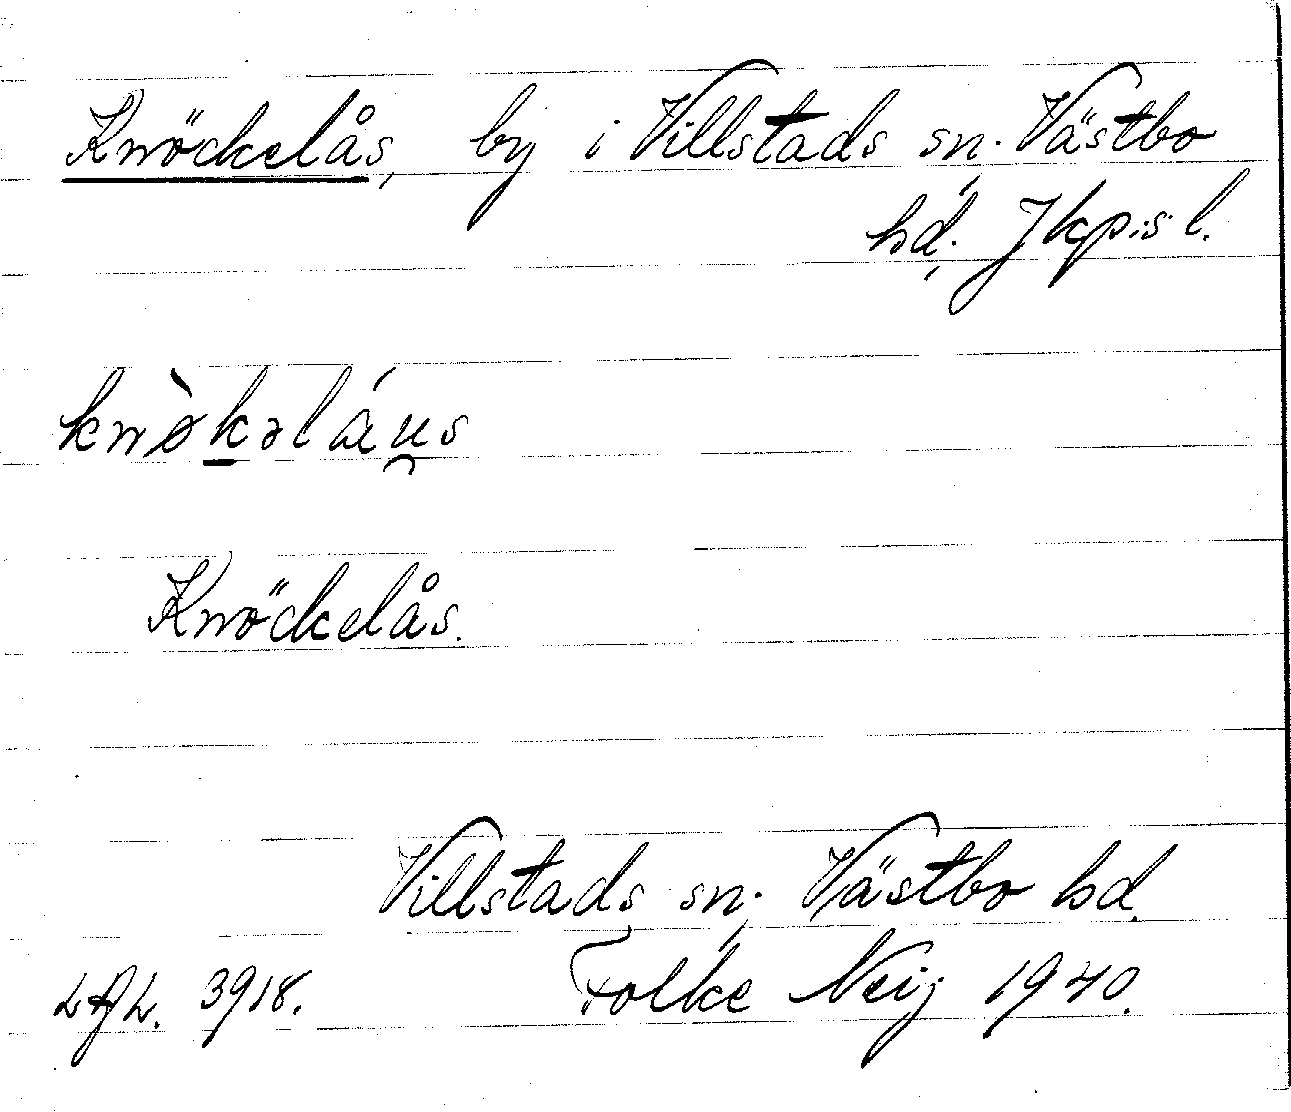 Knöckelås, by i Villstads sn. Västbo
hd. Jkp:s l.
knø̀kəláu̯s
Knöckelås.
Villstads sn. Västbo hd.
3918. Folke Neij 1940.